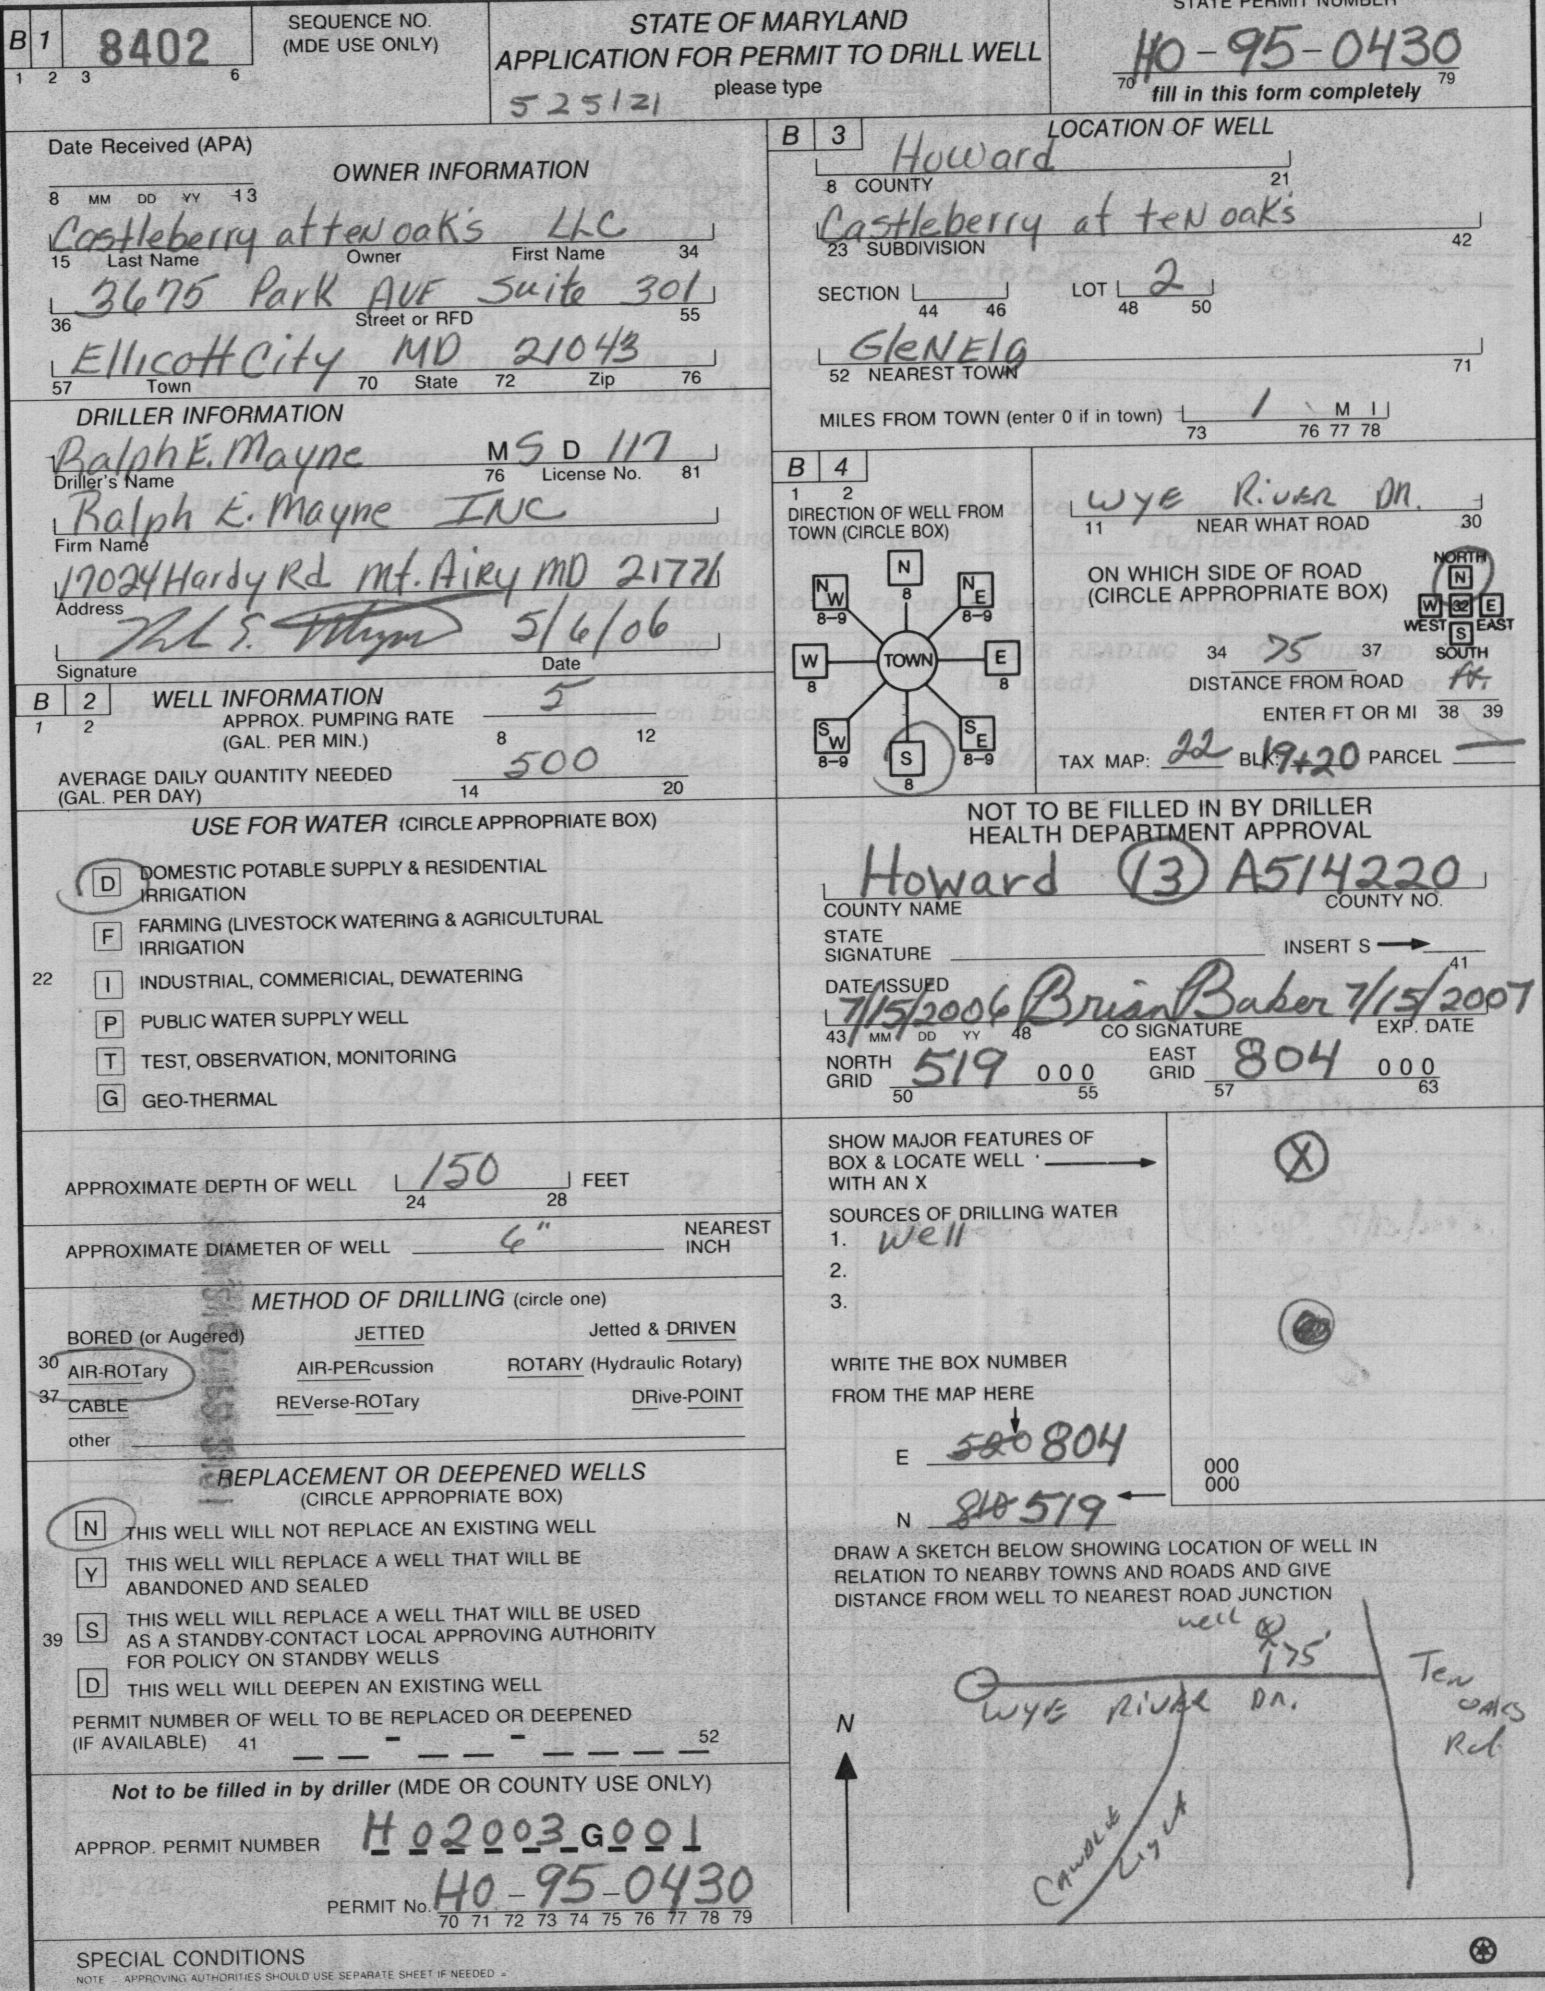 B 1 8402
1 2 3 6
SEQUENCE NO.
(MDE USE ONLY)
STATE OF MARYLAND
APPLICATION FOR PERMIT TO DRILL WELL
please type
525121
STATE PERMIT NUMBER
HO-95-0430
70 79
fill in this form completely
Date Received (APA)
8 MM DD YY 13
OWNER INFORMATION
Castleberry at ten oak's LLC
15 Last Name Owner First Name 34
3675 Park AVE Suite 301
36 Street or RFD 55
Ellicott City MD 21043
57 Town 70 State 72 Zip 76
DRILLER INFORMATION
Ralph E. Mayne M S D 117
Driller's Name 76 License No. 81
Ralph E. Mayne INC
Firm Name
17024 Hardy Rd Mt. Airy MD 21771
Address
5/6/06
Signature Date
B 2 WELL INFORMATION
1 2
APPROX. PUMPING RATE 5
(GAL. PER MIN.) 8 12
AVERAGE DAILY QUANTITY NEEDED 500
(GAL. PER DAY) 14 20
USE FOR WATER (CIRCLE APPROPRIATE BOX)
D DOMESTIC POTABLE SUPPLY & RESIDENTIAL
IRRIGATION
F FARMING (LIVESTOCK WATERING & AGRICULTURAL
IRRIGATION
22 I INDUSTRIAL, COMMERICIAL, DEWATERING
P PUBLIC WATER SUPPLY WELL
T TEST, OBSERVATION, MONITORING
G GEO-THERMAL
APPROXIMATE DEPTH OF WELL 150 FEET
24 28
APPROXIMATE DIAMETER OF WELL 6" NEAREST
INCH
METHOD OF DRILLING (circle one)
BORED (or Augered) JETTED Jetted & DRIVEN
30 AIR-ROTary AIR-PERcussion ROTARY (Hydraulic Rotary)
37 CABLE REVerse-ROTary DRive-POINT
other
REPLACEMENT OR DEEPENED WELLS
(CIRCLE APPROPRIATE BOX)
N THIS WELL WILL NOT REPLACE AN EXISTING WELL
Y THIS WELL WILL REPLACE A WELL THAT WILL BE
ABANDONED AND SEALED
39 S THIS WELL WILL REPLACE A WELL THAT WILL BE USED
AS A STANDBY-CONTACT LOCAL APPROVING AUTHORITY
FOR POLICY ON STANDBY WELLS
D THIS WELL WILL DEEPEN AN EXISTING WELL
PERMIT NUMBER OF WELL TO BE REPLACED OR DEEPENED
(IF AVAILABLE) 41 52
Not to be filled in by driller (MDE OR COUNTY USE ONLY)
APPROP. PERMIT NUMBER H02003G001
PERMIT No. HO-95-0430
70 71 72 73 74 75 76 77 78 79
SPECIAL CONDITIONS
NOTE - APPROVING AUTHORITIES SHOULD USE SEPARATE SHEET IF NEEDED -
B 3 LOCATION OF WELL
Howard
8 COUNTY 21
Castleberry at teN oak's
23 SUBDIVISION 42
SECTION LOT 2
44 46 48 50
GleNElg
52 NEAREST TOWN 71
MILES FROM TOWN (enter 0 if in town) 1 M I
73 76 77 78
B 4
1 2
DIRECTION OF WELL FROM
TOWN (CIRCLE BOX)
N
8
NW NE
8-9 8-9
W TOWN E
8 8
SW S SE
8-9 8 8-9
WYE RIVER DR.
11 NEAR WHAT ROAD 30
ON WHICH SIDE OF ROAD
(CIRCLE APPROPRIATE BOX)
NORTH
N
W 32 E
WEST EAST
S
SOUTH
34 75 37
DISTANCE FROM ROAD ft.
ENTER FT OR MI 38 39
TAX MAP: 22 BLK: 19+20 PARCEL
NOT TO BE FILLED IN BY DRILLER
HEALTH DEPARTMENT APPROVAL
Howard 13 A514220
COUNTY NAME COUNTY NO.
STATE
SIGNATURE INSERT S
41
DATE ISSUED
7/15/2006 Brian Baker 7/15/2007
43 MM DD YY 48 CO SIGNATURE EXP. DATE
NORTH
GRID 519 000
50 55
EAST
GRID 804 000
57 63
SHOW MAJOR FEATURES OF
BOX & LOCATE WELL
WITH AN X
X
SOURCES OF DRILLING WATER
1. Well
2.
3.
WRITE THE BOX NUMBER
FROM THE MAP HERE
E 520 804
N 810 519
000
000
DRAW A SKETCH BELOW SHOWING LOCATION OF WELL IN
RELATION TO NEARBY TOWNS AND ROADS AND GIVE
DISTANCE FROM WELL TO NEAREST ROAD JUNCTION
well
75'
WYE RIVER DR.
Ten
oaks
Rd
N
CANDLE
Light